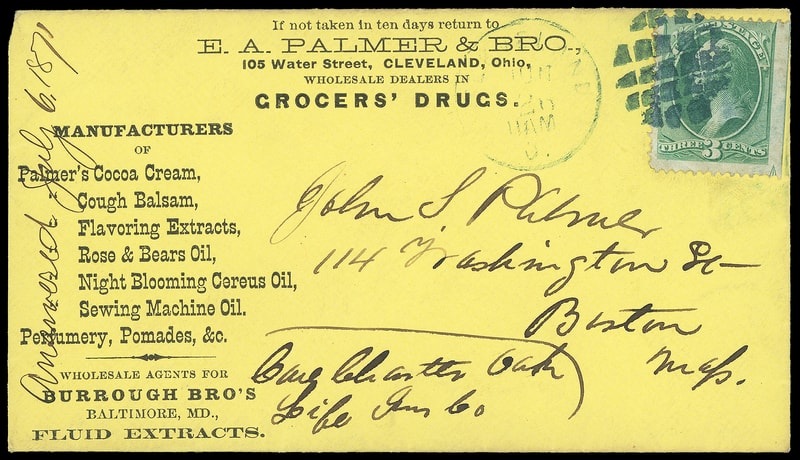 If not taken in ten days return to
E. A. PALMER & BRO.,
105 Water Street, CLEVELAND, Ohio,
WHOLESALE DEALERS IN
GROCERS' DRUGS.
MANUFACTURERS
OF
Palmer's Cocoa Cream,
Cough Balsam,
Flavoring Extracts,
Rose & Bears Oil,
Night Blooming Cereus Oil,
Sewing Machine Oil.
Perfumery, Pomades, &c.
WHOLESALE AGENTS FOR
BURROUGH BRO'S
BALTIMORE, MD.,
FLUID EXTRACTS.
Answered July 6. 1871
26
11 AM
O.
POSTAGE
THREE 3 CENTS
John S. Palmer
114 Washington St
Boston
Mass.
Care Charter Oak
Life Ins Co